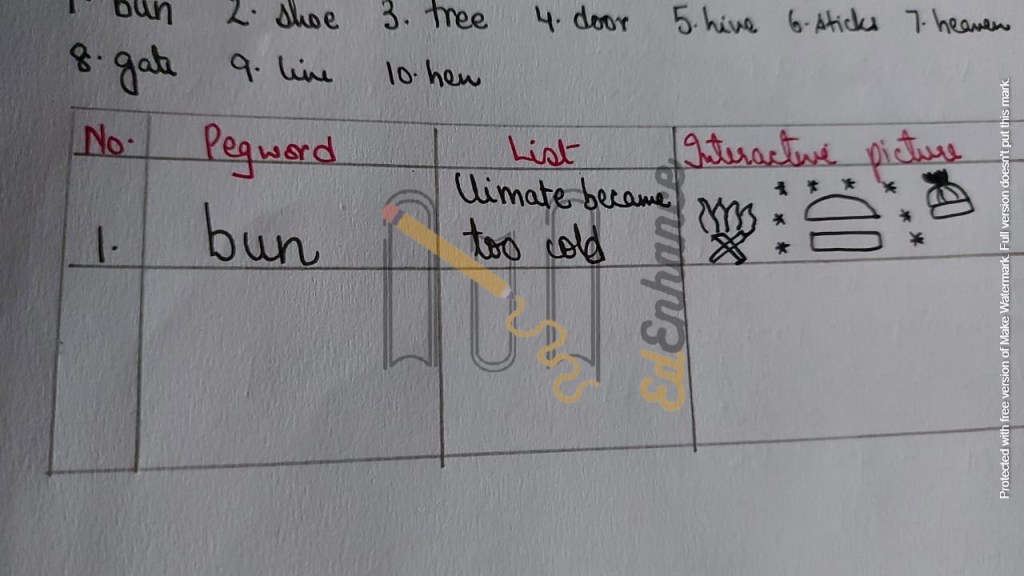 1. bun 2. shoe 3. tree 4. door 5. hive 6. sticks 7. heaven
8. gate 9. line 10. hen
No. Pegword List Interactive picture
1. bun Climate became
too cold
EdEnhance
Protected with free version of Make Watermark. Full version doesn't put this mark.